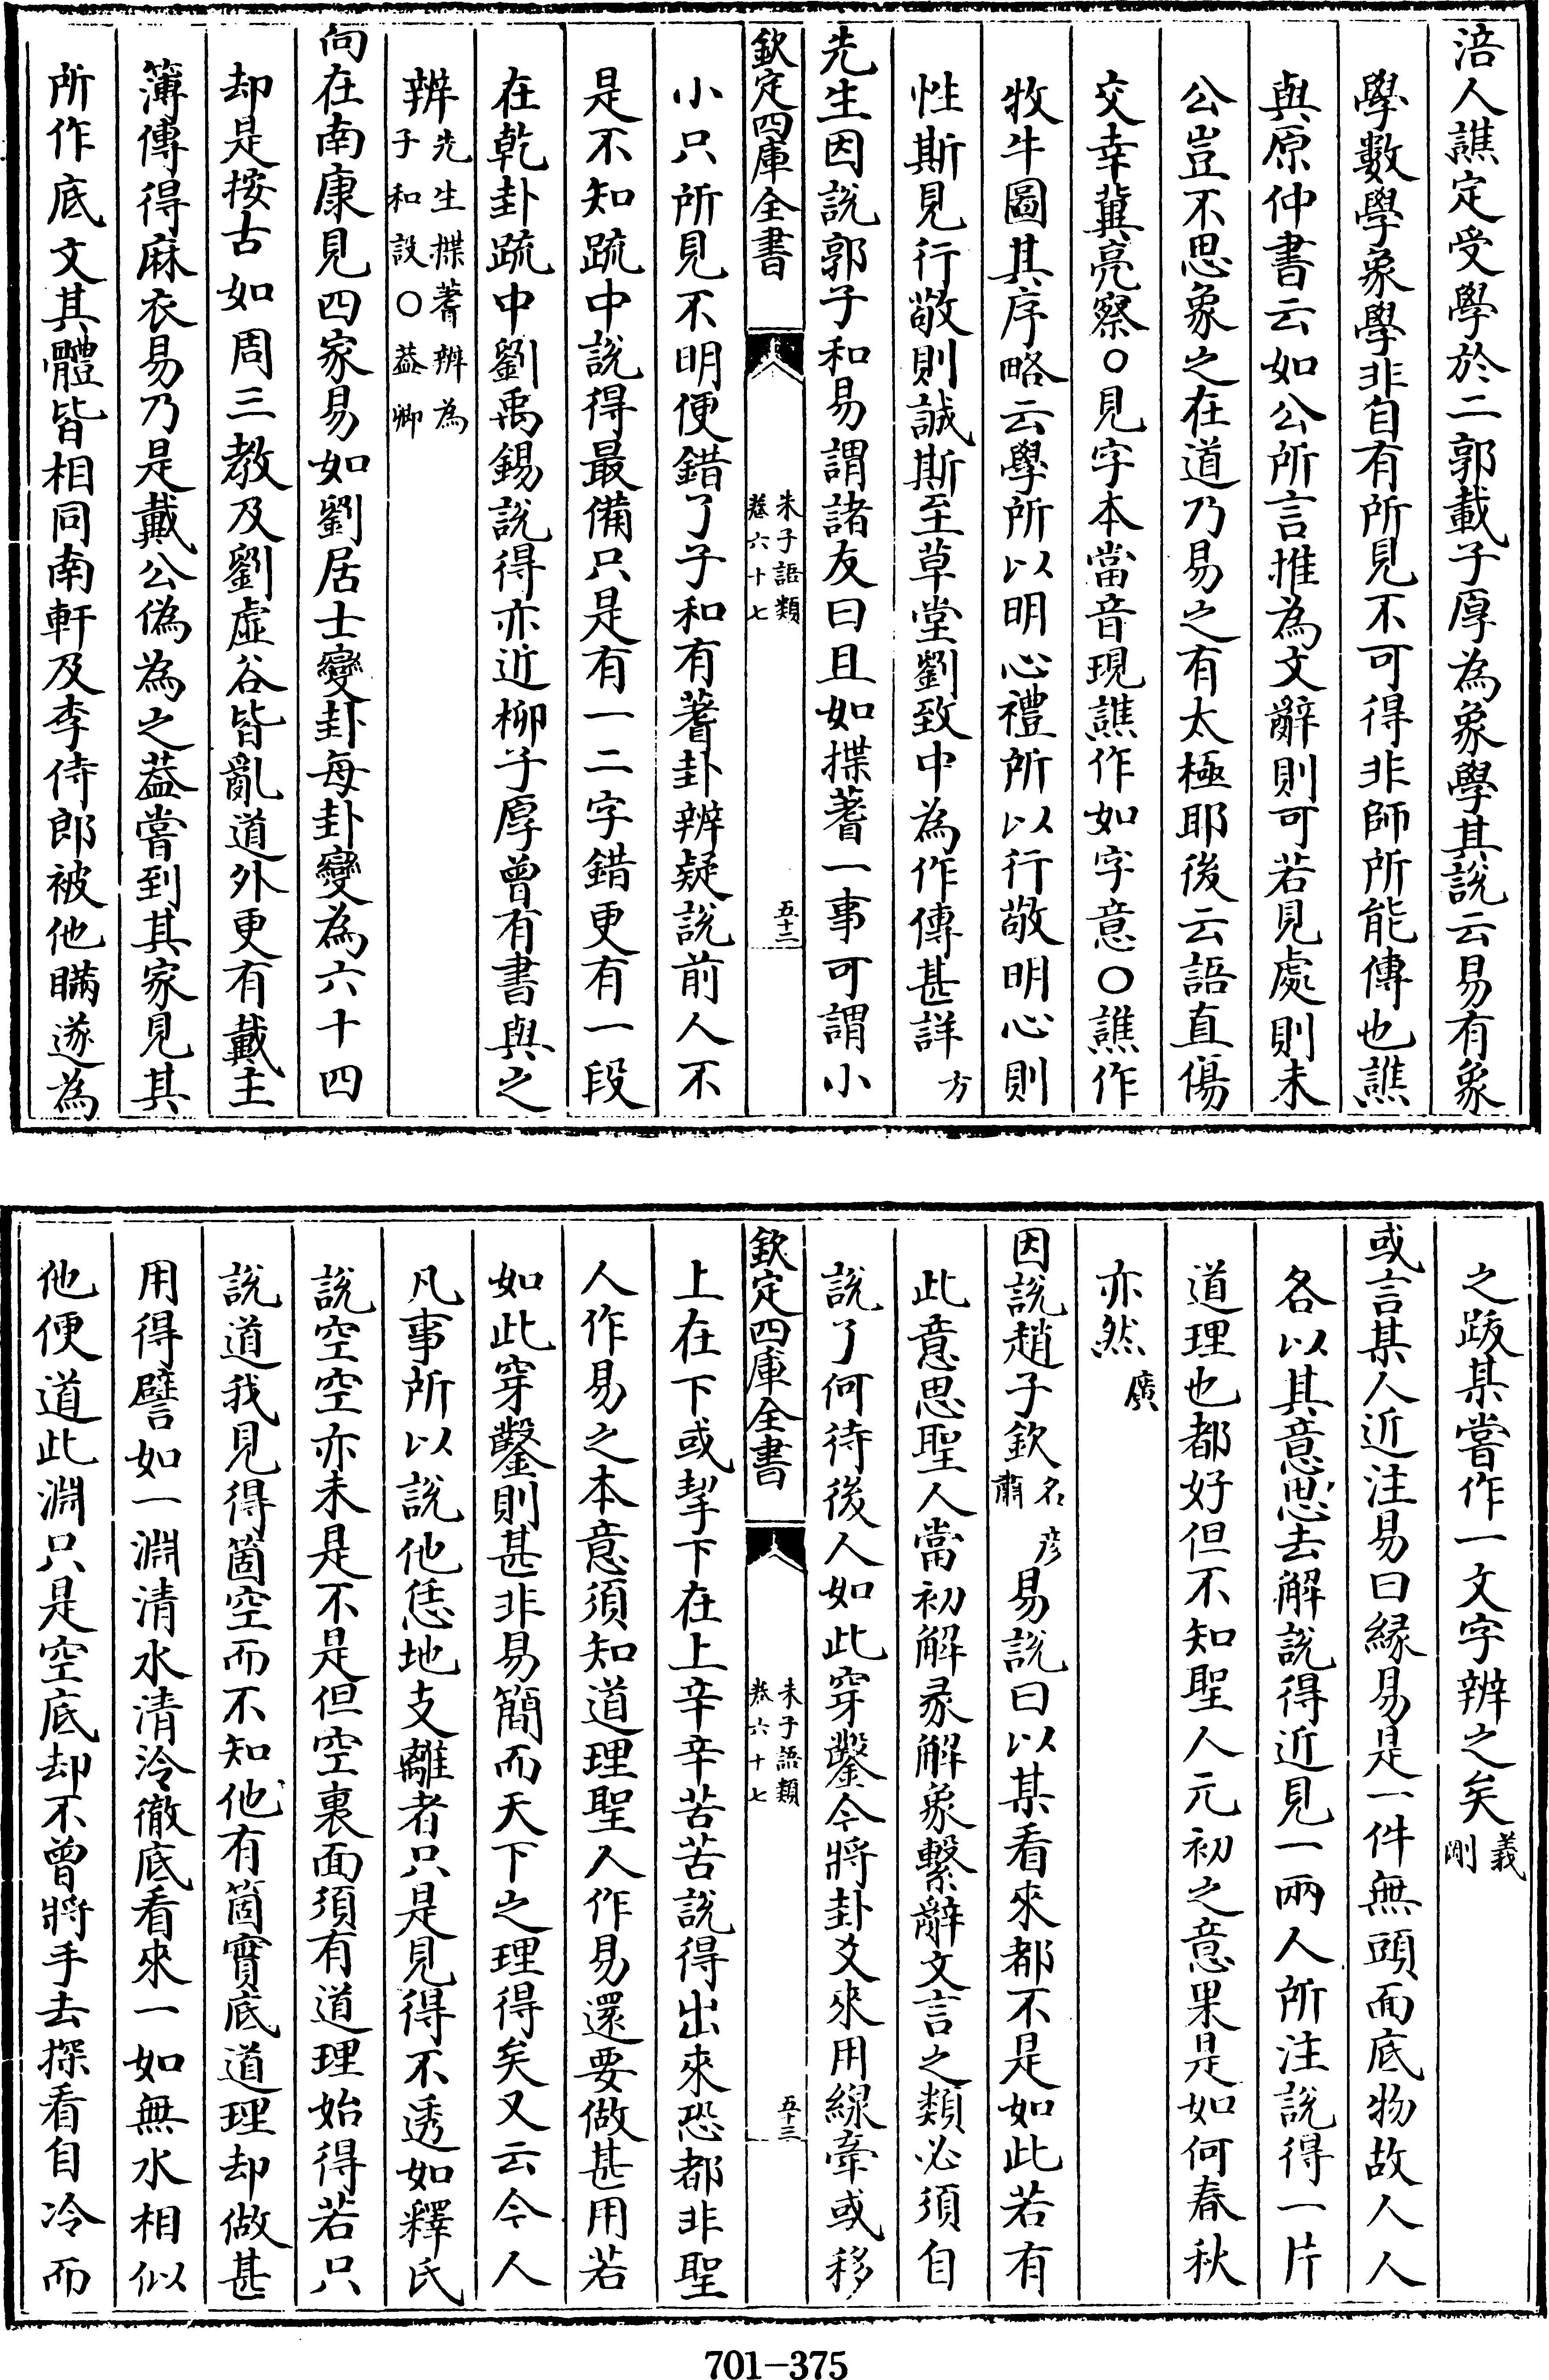 涪人譙定受學於二郭載子厚為象學其說云易有象
學數學象學非自有所見不可得非師所能傳也譙
與原仲書云如公所言推為文辭則可若見處則未
公豈不思象之在道乃易之有太極耶後云語直傷
交幸冀亮察○見字本當音現譙作如字意○譙作
牧牛圖其序略云學所以明心禮所以行敬明心則
性斯見行敬則誠斯至草堂劉致中為作傳甚詳方
先生因說郭子和易謂諸友曰且如揲蓍一事可謂小
欽定四庫全書
朱子語類
卷六十七
五十二
小只所見不明便錯了子和有蓍卦辨疑說前人不
是不知疏中說得最備只是有一二字錯更有一段
在乾卦疏中劉禹錫說得亦近柳子厚曾有書與之
辨先生揲蓍辨為
子和設○蓋卿
向在南康見四家易如劉居士變卦每卦變為六十四
却是按古如周三教及劉虛谷皆亂道外更有戴主
簿傳得麻衣易乃是戴公偽為之蓋嘗到其家見其
所作底文其體皆相同南軒及李侍郎被他瞞遂為
之跋某嘗作一文字辨之矣義
剛
或言某人近注易曰緣易是一件無頭面底物故人人
各以其意思去解說得近見一兩人所注說得一片
道理也都好但不知聖人元初之意果是如何春秋
亦然廣
因說趙子欽名彥
肅易說曰以某看來都不是如此若有
此意思聖人當初解彖解象繫辭文言之類必須自
說了何待後人如此穿鑿今將卦爻來用線牽或移
欽定四庫全書
朱子語類
卷六十七
五十三
上在下或挈下在上辛辛苦苦說得出來恐都非聖
人作易之本意須知道理聖人作易還要做甚用若
如此穿鑿則甚非易簡而天下之理得矣又云今人
凡事所以說他恁地支離者只是見得不透如釋氏
說空空亦未是不是但空裏面須有道理始得若只
說道我見得箇空而不知他有箇實底道理却做甚
用得譬如一淵清水清泠徹底看來一如無水相似
他便道此淵只是空底却不曾將手去探看自冷而
701-375